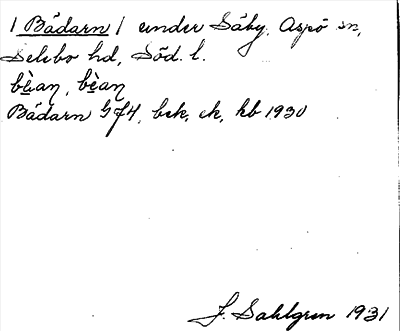 / Bådarn / under Såby, Aspö sn,
Selebo hd, Söd. l.
bè̱an, bè̱an
Bådarn G74, bek, ek, kb 1930
J. Sahlgren 1931